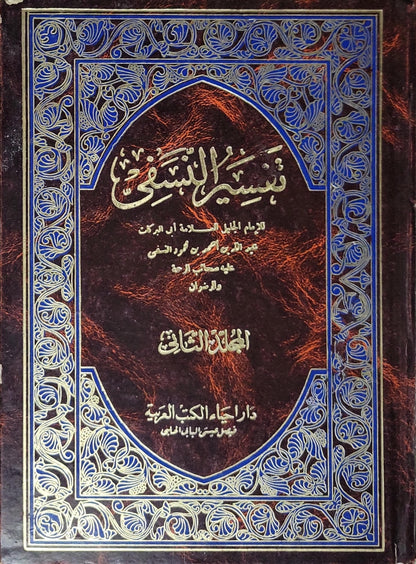 تفسير النسفي
للإمام الجليل العلامة أبى البركات
عبد الله بن أحمد بن محمود النسفى
عليه سحائب الرحمة
والرضوان
المجلد الثانى
دار احياء الكتب العربية
فيصل عيسى البابى الحلبى